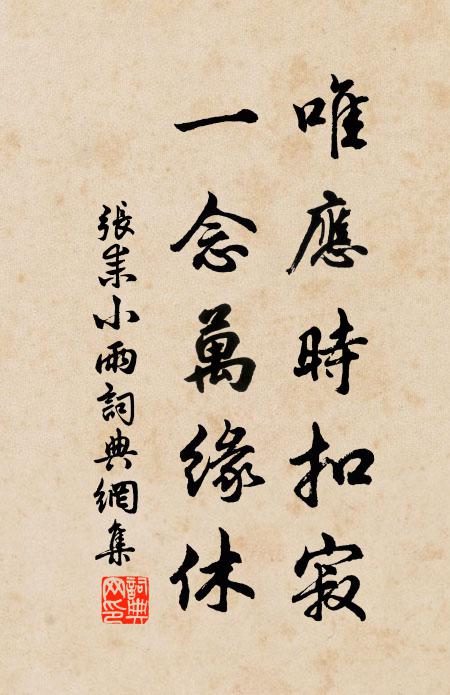 唯應時扣寂
一念萬緣休
張耒小雨詞典網集
詞典网印